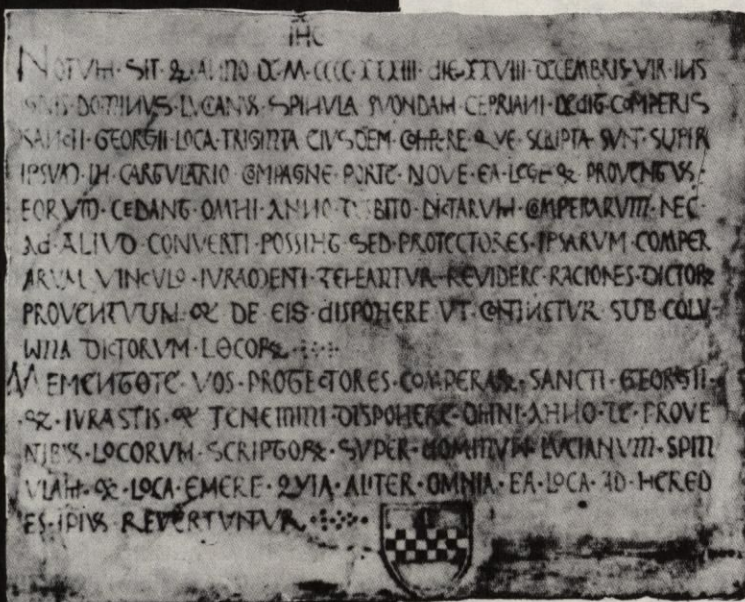 IHC
NOTVM · SIT · & · ANNO · DE · M · CCCC · XXXIII · DIE · XXVIII · DECEMBRIS · VIR · INS
DOMINVS · LVCANVS · SPINVLA · QVONDAM · CEPRIANI · DEDIT · COMPERIS
SANCTI · GEORGII · LOCA · TRIGINTA · EIVSDEM · COMPERE · QVE · SCRIPTA · SVNT · SVPER
IPSVM · IN · CARTVLARIO · COMPAGNE · PORTE · NOVE · EA · LEGE · & · PROVENTVS
EORVM · CEDANT · OMNI · ANNO · DICTARVM · COMPERARVM · NEC
AD · ALIVD · CONVERTI · POSSINT · SED · PROTECTORES · IPSARVM · COMPER
ARVM · VINCVLO · IVRAMENTI · TENEANTVR · REVIDERE · RACIONES · DICTOR
PROVENTVVM · & · DE · EIS · DISPONERE · VT · CONTINETVR · SUB · COLV
MNA · DICTORVM · LOCOR
MEMENTOTE · VOS · PROTECTORES · COMPERAR · SANCTI · GEORGII
& · IVRASTIS · & · TENEMINI · DISPONERE · OMNI · ANNO · DE · PROVE
LOCORVM · SCRIPTOR · SVPER · DOMINVM · LVCIANVM · SPIN
VLAM · & · LOCA · EMERE · QVIA · ALITER · OMNIA · EA · LOCA · AD · HERED
ES · IPIVS · REVERTVNTVR